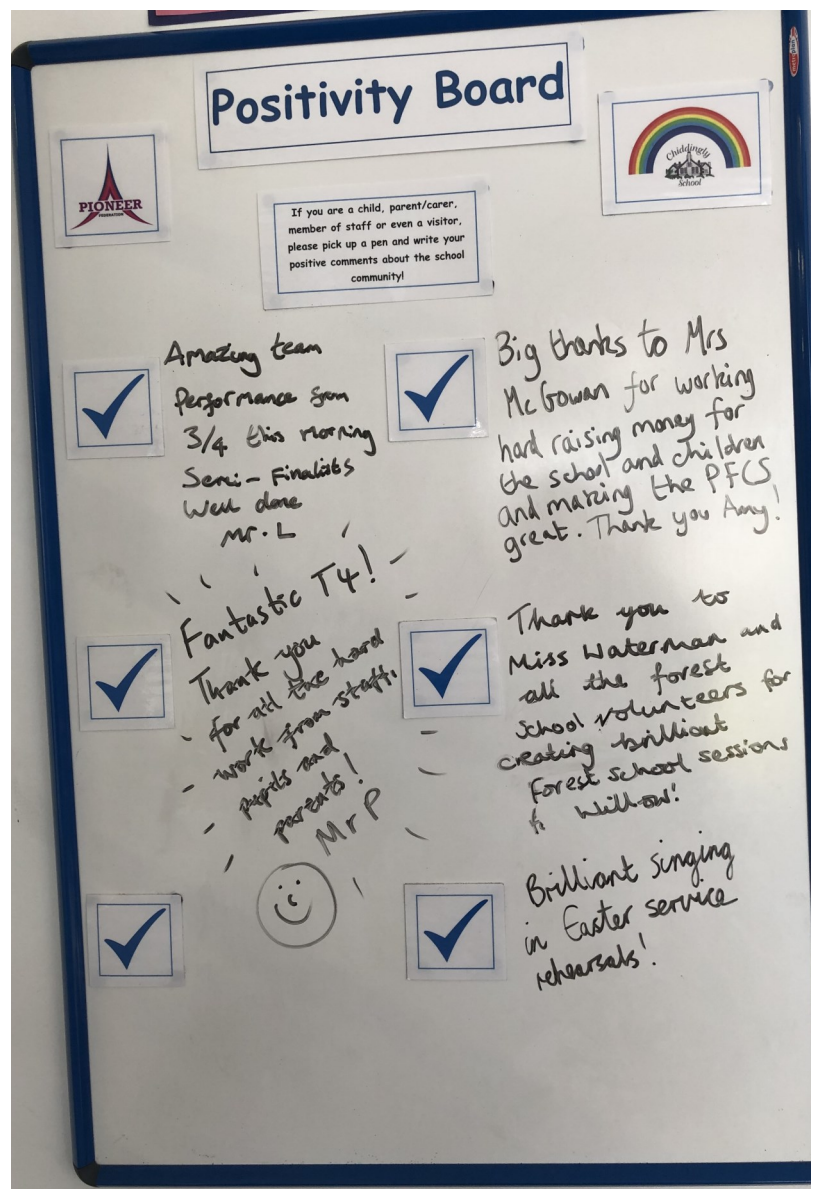 Positivity Board
PIONEER
FEDERATION
Chiddingly
School
If you are a child, parent/carer,
member of staff or even a visitor,
please pick up a pen and write your
positive comments about the school
community!
Amazing team
Performance from
3/4 this morning
Semi-Finalists
Well done
Mr. L
Big thanks to Mrs
McGowan for working
hard raising money for
the school and children
and making the PFCS
great. Thank you Amy!
Fantastic T4!
Thank you
for all the hard
work from staff,
pupils and
parents!
Mr P
Thank you to
Miss Waterman and
all the forest
school volunteers for
creating brilliant
Forest school sessions
Willow!
Brilliant singing
in Easter service
rehearsals!